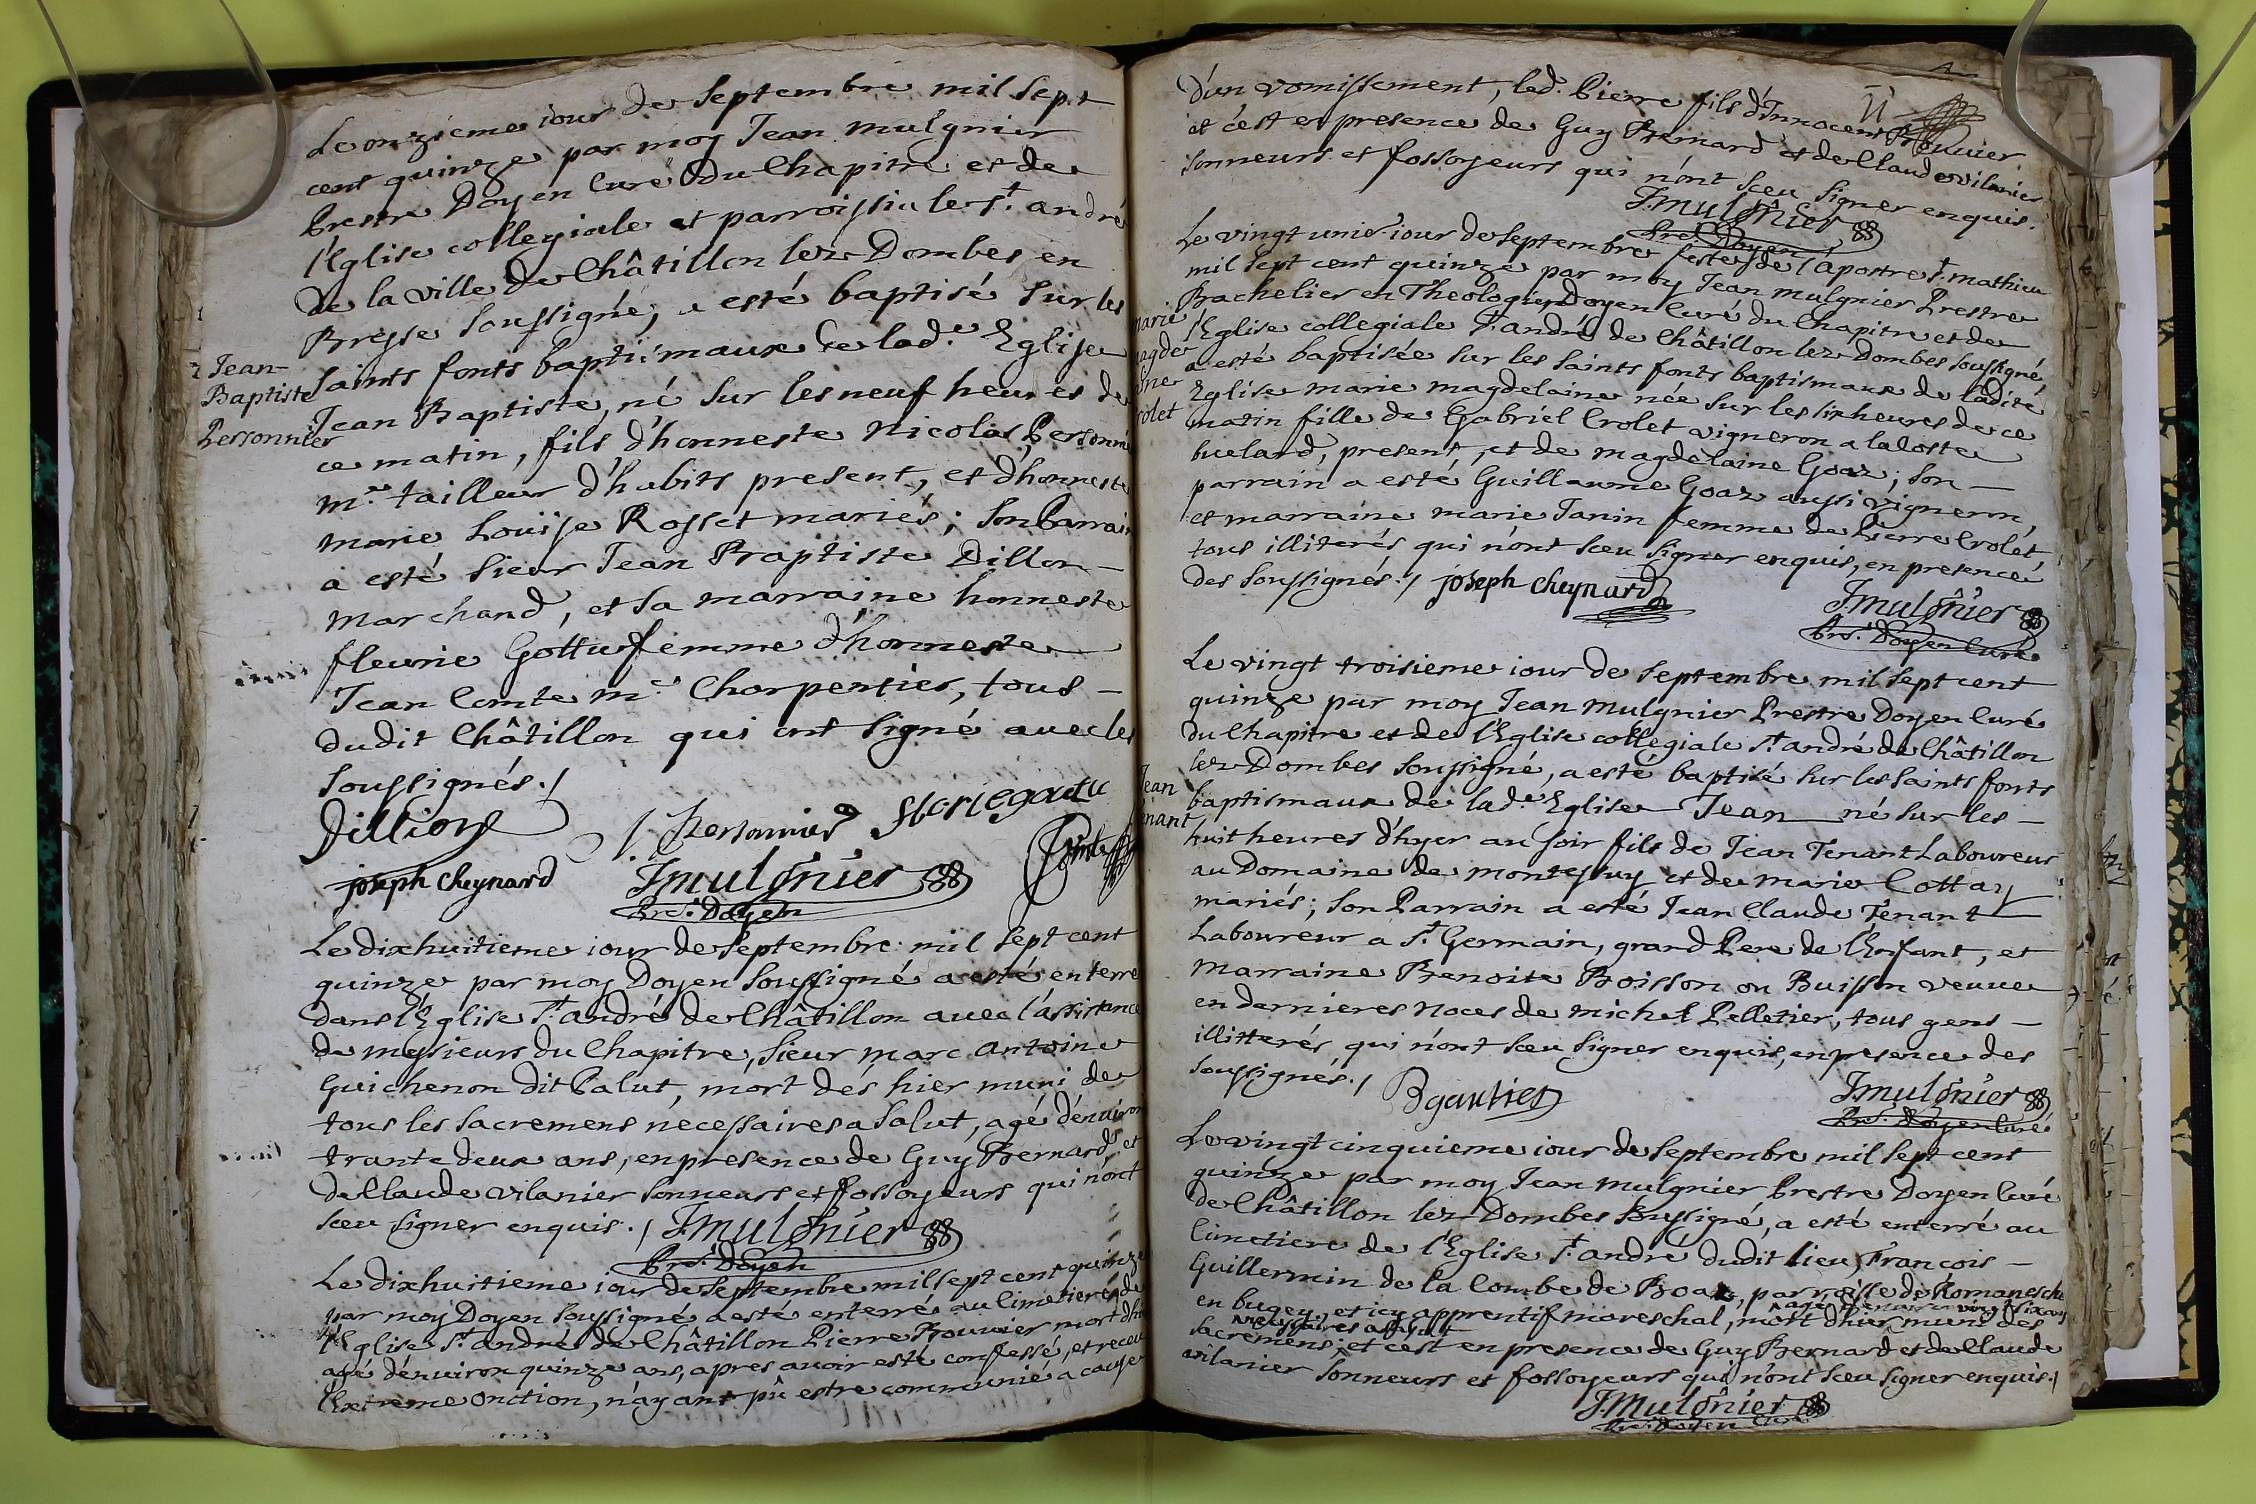 Le onzieme iour de Septembre mil sept
cent quinze par moy Jean mulgnier
Prestre Doyen Curé du Chapitre et de
l'Eglise collegiale et parroissiale St. andré
de la ville de Châtillon lez Dombes en
Bresse soussigné, a esté baptisé sur les
saints fonts baptismaux de lad.e Eglise
Jean-
Baptiste
Personnier
Jean Baptiste, né sur les neuf heures de
ce matin, fils d'honneste Nicolas Personnier
m.e tailleur d'habits present, et d'honneste
marie Louise Rosset mariés; son Parrain
a esté sieur Jean Baptiste Dillon —
marchand, et sa marraine honneste
fleurie Gottu femme d'honneste
Jean Comte m.e Charpentier, tous —
dudit Châtillon qui ont signé avec les
soussignés./
Dillion
Personnier
joseph Cheynard
JMulgnier
Pre. Doyen
Comte
Le dixhuitieme iour de septembre mil sept cent
quinze par moy Doyen soussigné a esté enterré
dans l'Eglise St. andré de Châtillon avec l'assistance
de messieurs du Chapitre, sieur marc antoine
Guichenon dit Palut, mort dés hier muni de
tous les sacremens necessaires a salut, agé d'environ
trante deux ans, en presence de Guy Bernard, et
de Claude vilanier sonneurs et fossoyeurs qui n'ont
sceu signer enquis./ JMulgnier
Pre. Doyen
Le dixhuitieme iour de Septembre mil sept cent quinze
par moy Doyen soussigné a esté enterré au cimetiere de
l'Eglise St. andré de Châtillon Pierre Bouvier mort d'hier
agé d'environ quinze ans, apres avoir esté confessé, et receu
l'Extreme onction, n'ayant pû estre communié a cause
11
d'un vomissement, led. Pierre fils d'Innocent Bouvier
et c'est en presence de Guy Bernard et de Claude vilanier
sonneurs et fossoyeurs qui n'ont sceu signer enquis.
JMulgnier
Pre. Doyen
Le vingt unie iour de Septembre feste de l'apostre St. mathieu
mil sept cent quinze par moy Jean mulgnier Prestre
Bachelier en Theologie Doyen Curé du Chapitre et de
l'Eglise collegiale St. andré de Châtillon lez Dombes soussigné,
marie
magde
laine
Crolet
a esté baptisée sur les saints fonts baptismaux de ladite
Eglise marie magdelaine née sur les six heures de ce
matin fille de Gabriel Crolet vigneron a la Coste
buelard, present, et de magdelaine Goaz; son —
parrain a esté Guillaume Goaz aussi vigneron,
et marraine marie Janin femme de Pierre Crolet,
tous illiterés qui n'ont sceu signer enquis, en presence
des soussignés./ joseph Cheynard
JMulgnier
Pre. Doyen Curé
Le vingt troisieme iour de septembre mil sept cent
quinze par moy Jean mulgnier Prestre Doyen Curé
du Chapitre et de l'Eglise collegiale St. andré de Châtillon
lez Dombes soussigné, a esté baptisé sur les saints fonts
Jean
Tenant
baptismaux de lad.e Eglise Jean né sur les —
huit heures d'hyer au soir fils de Jean Tenant Laboureur
au Domaine de montesuy et de marie Cottay
mariés; son Parrain a esté Jean Claude Tenant
Laboureur a St. Germain, grand Pere de l'Enfant, et
marraine Benoite Boisson ou Buisson veuve
en dernieres noces de michel Pelletier, tous gens —
illitterés qui n'ont sceu signer enquis, en presence des
soussignés./ Bgautier
JMulgnier
Pre. Doyen Curé
Le vingt cinquieme iour de septembre mil sept cent
quinze par moy Jean mulgnier Prestre Doyen Curé
de Châtillon lez Dombes soussigné, a esté enterré au
Cimetiere de l'Eglise St. andré dudit lieu François —
Guillermin de la Combe de parroisse de Romanesche
agé d'environ vingt six ans
en bugey, et icy apprentif mareschal, mort d'hier muni des
necessaires a salut
sacremens, et c'est en presence de Guy Bernard et de Claude
vilanier sonneurs et fossoyeurs qui n'ont sceu signer enquis./
JMulgnier
Pre. Doyen Curé